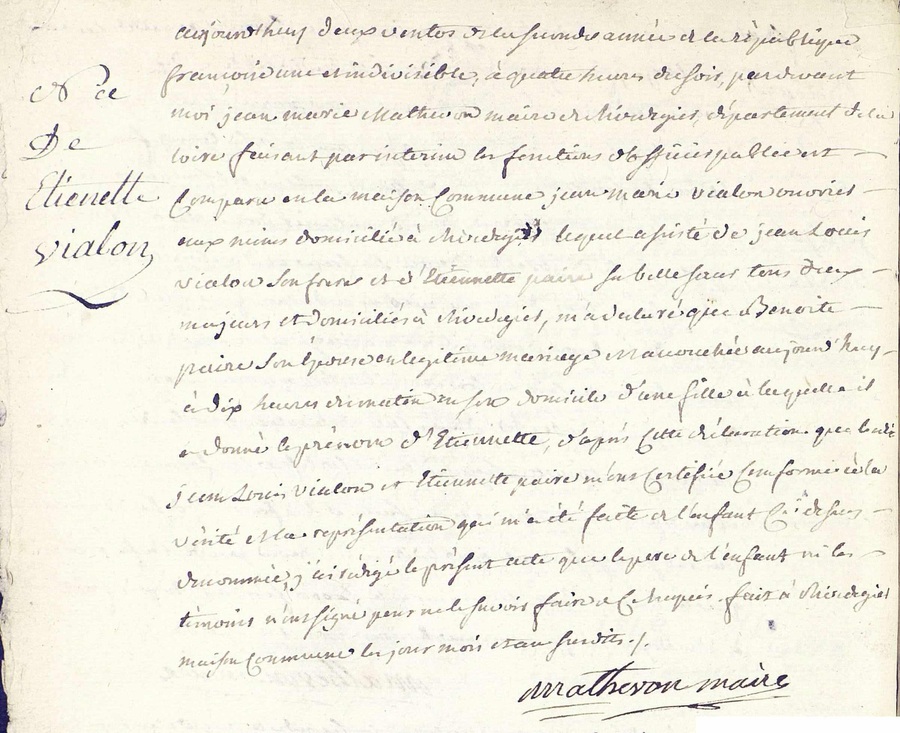 Nce
De
Etienette
vialon
aujourdhuy deux ventos de la seconde année de la république
françoise une et indivisible, à quatre heures du soir, pardevant
moi jean marie Mathevon maire de Rivedegier, département de la
loire faisant par interim les fonctions d'officier public est
Comparu en la maison Commune jean marie vialon ouvrier
aux mines domicilié à Rivedegier lequel assisté de jean Louis
vialon son frere et d'Etiennette paire sa belle sœur tous deux
majeurs et domiciliés à Rivedegier, m'a declaré que Benoite
paire son Epouse en legitime mariage est accouchée aujourd'huy
à dix heures du matin en son domicile d'une fille à laquelle il
a donné le prénom d'Etiennette, d'après cette déclaration que
jean Louis vialon et Etiennette paire m'ont Certifié Conforme à la
vérité et la représentation qui m'a été faite de l'enfant Ci desus
denommée, j'ai rédigé le présent acte que le pere de l'enfant ni les
témoins n'ont signé pour ne le savoir faire de Ce Requis. fait à Rivedegier
maison Commune les jour mois et an susdits ./.
Mathevon maire